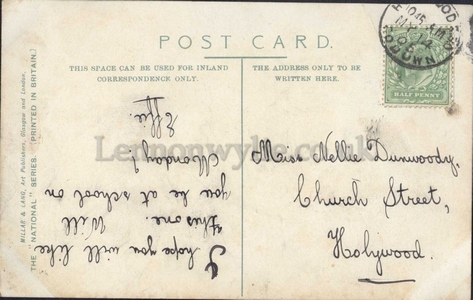 POST CARD.
THIS SPACE CAN BE USED FOR INLAND
CORRESPONDENCE ONLY.
THE ADDRESS ONLY TO BE
WRITTEN HERE.
I hope you will like
this one. Will
you be at school on
Monday?
Effie.
Miss Nellie Dunwoody,
Church Street,
Holywood.
MILLAR & LANG, Art Publishers, Glasgow and London.
THE "NATIONAL" SERIES. PRINTED IN BRITAIN.
HALF PENNY
Lennonwylie.co.uk